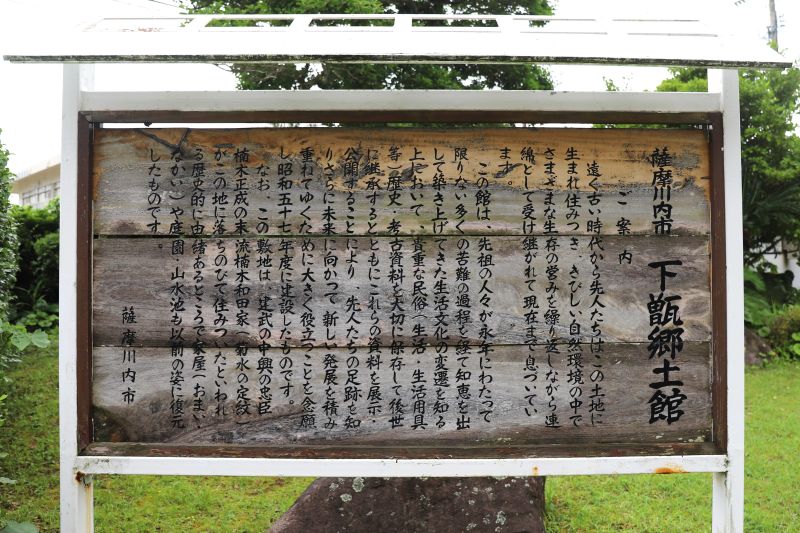 薩摩川内市 下甑郷土館
ご案内
遠く古い時代から先人たちはこの土地に
生まれ住みつき、きびしい自然環境の中で
さまざまな生存の営みを繰り返しながら連
綿として受け継がれて現在まで息づいてい
ます。
この館は、先祖の人々が永年にわたって
限りない多くの苦難の過程を経て知恵を出
して築き上げてきた生活文化の変遷を知る
上において、貴重な民俗(生活・生活用具
等)歴史・考古資料を大切に保存して後世
に継承するとともにこれらの資料を展示・
公開することにより、先人たちの足跡を知
りさらに未来に向かつて新しい発展を積み
重ねてゆくために大きく役立つことを念願
し昭和五十七年度に建設したものです。
なお、この敷地は、建武の中興の忠臣
楠木正成の末流楠木和田家(菊水の定紋)
がこの地に落ちのびて住みついたといわれ
る歴史的に由緒あるところで家屋(おまい
なかい)や庭園・山水池も以前の姿に復元
したものです。
薩摩川内市